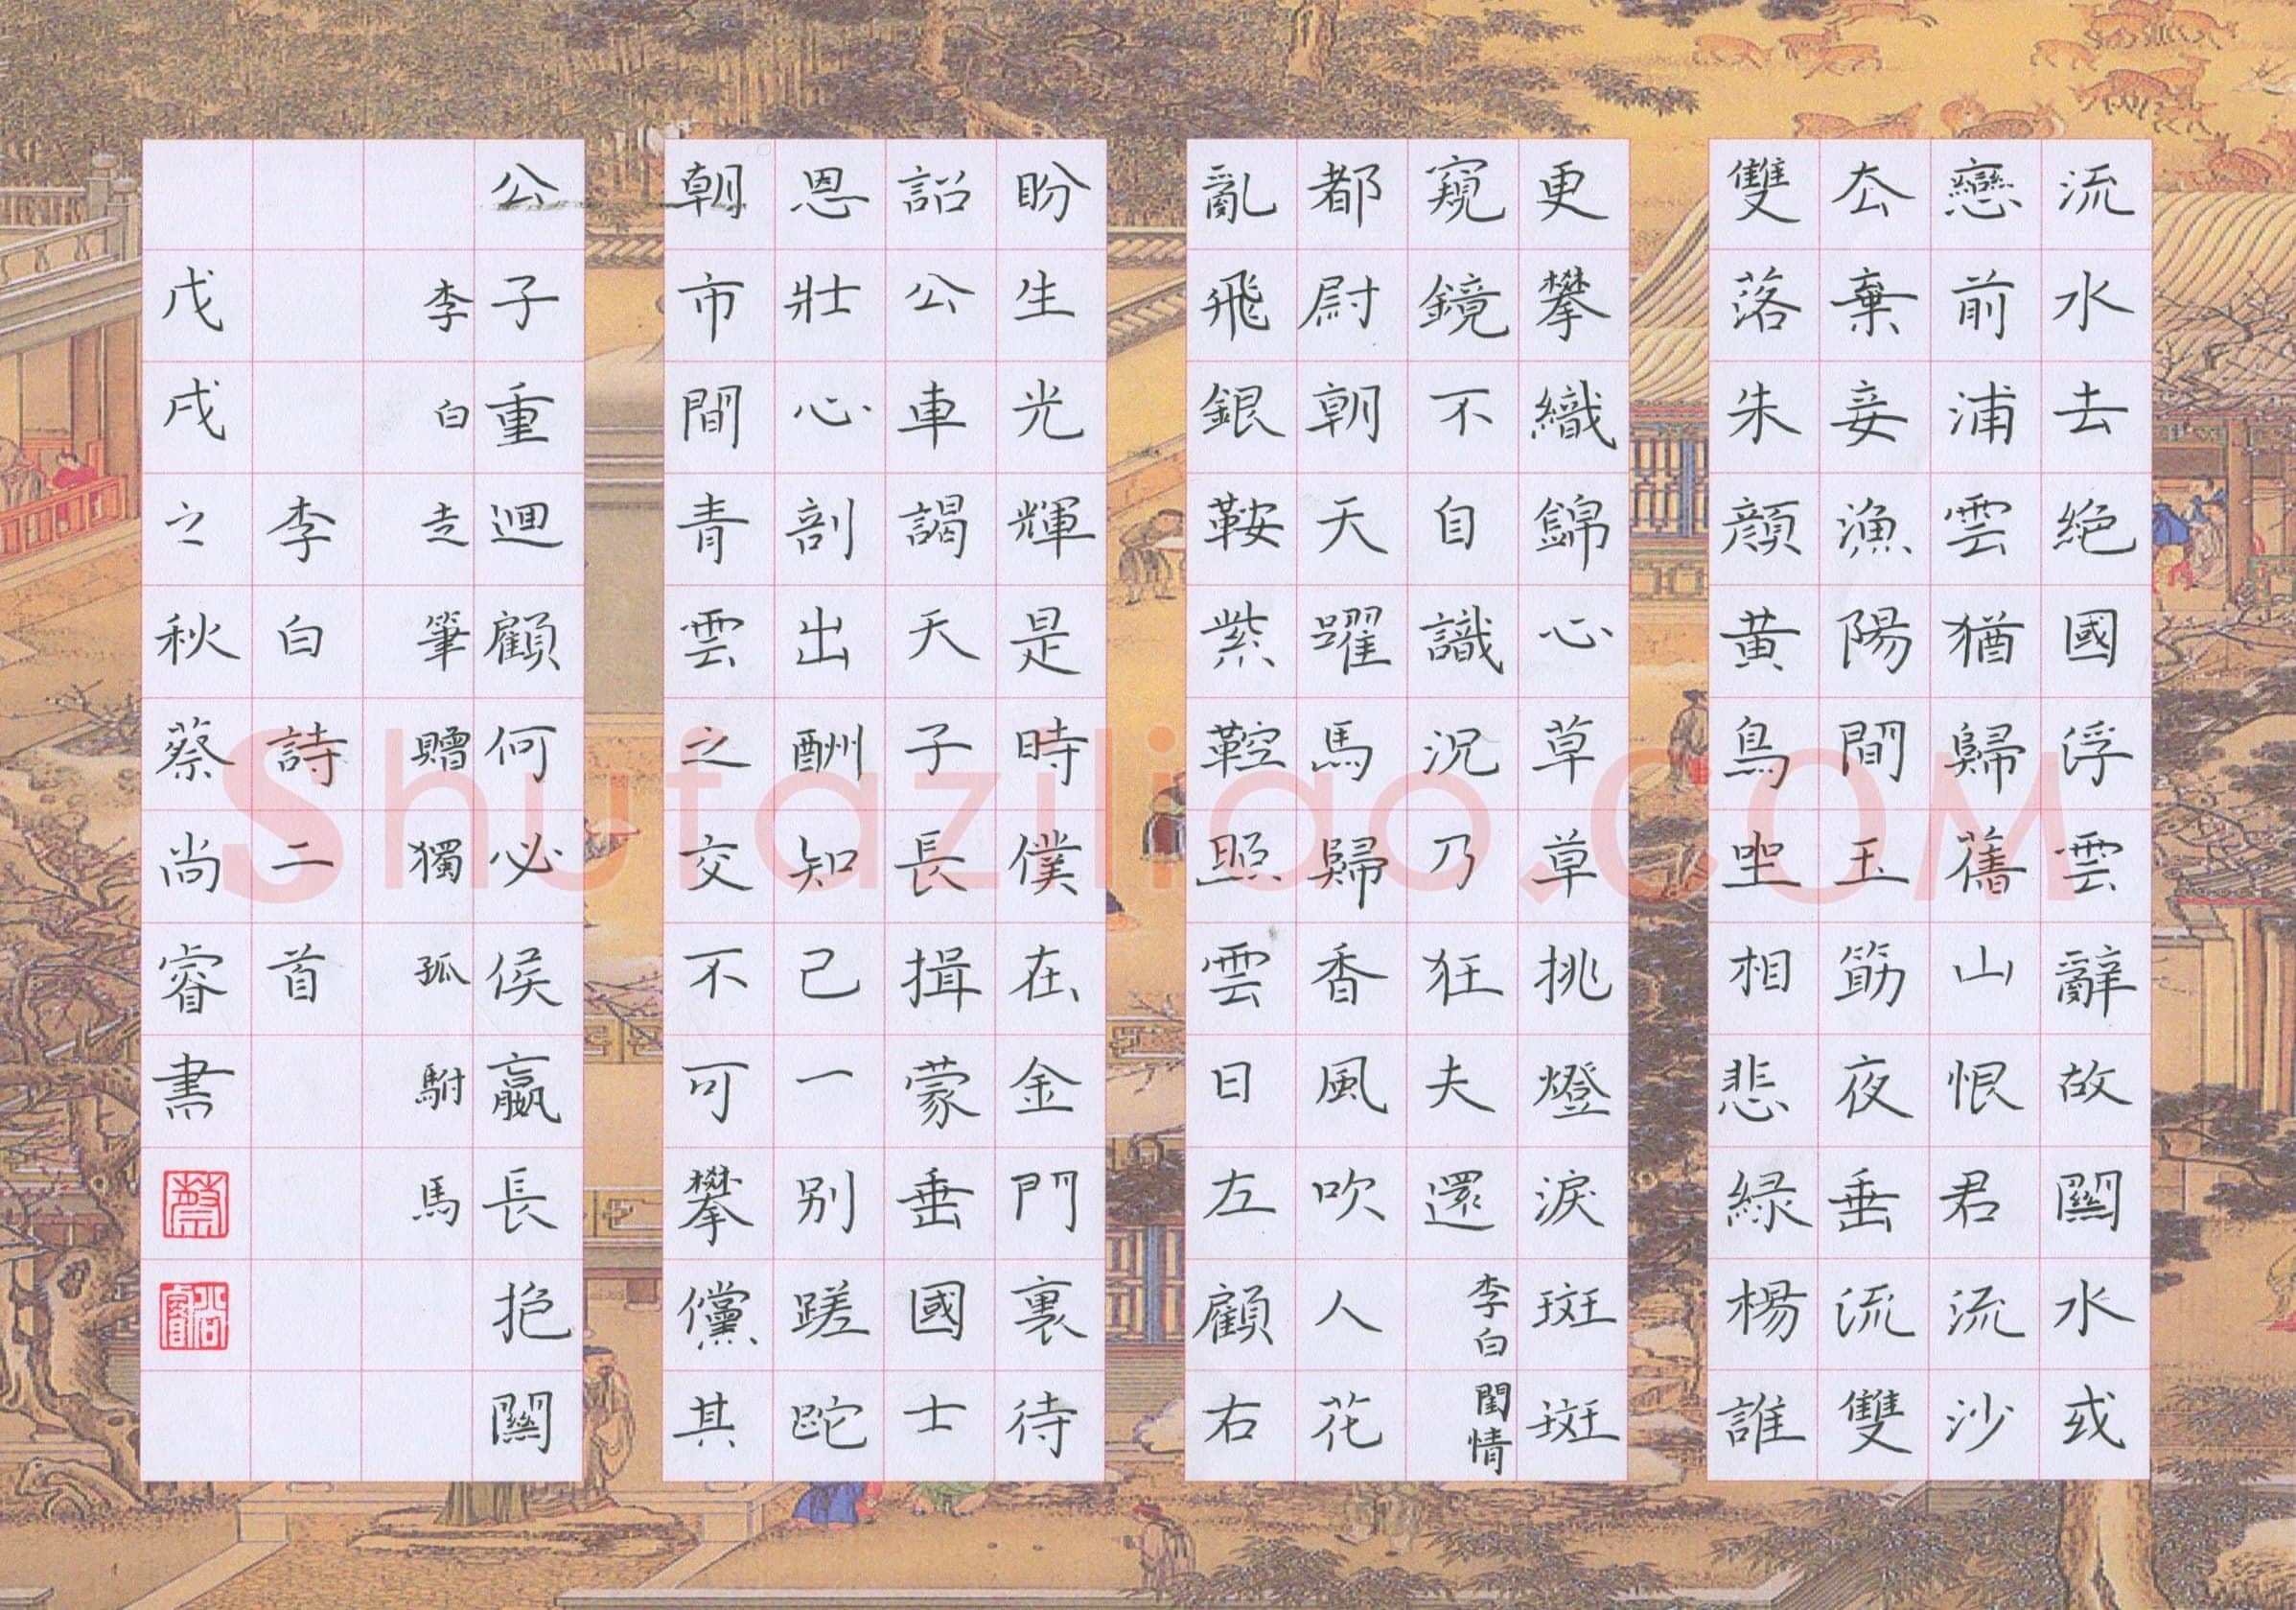 流水去绝國浮雲辭故關水或
戀前浦雲猶歸舊山恨君流沙
厺棄妾漁陽間玉筯夜垂流雙
雙落朱顏黃鳥坐相悲緑楊誰
更攀織錦心草草挑燈淚斑斑
窺鏡不自識況乃狂夫還 李白 閨情
都尉朝天躍馬歸香風吹人花
亂飛銀鞍紫鞚照雲日左顧右
盼生光輝是時僕在金門裏待
詔公車謁天子長揖蒙垂國士
恩壯心剖出酬知己一別蹉跎
朝市間青雲之交不可攀儻其
公子重迴顧何必侯嬴長抱關
李白走筆贈獨孤駙馬
李白詩二首
戊戌之秋蔡尚睿書
蔡
尚睿
Shufaziliao.COM